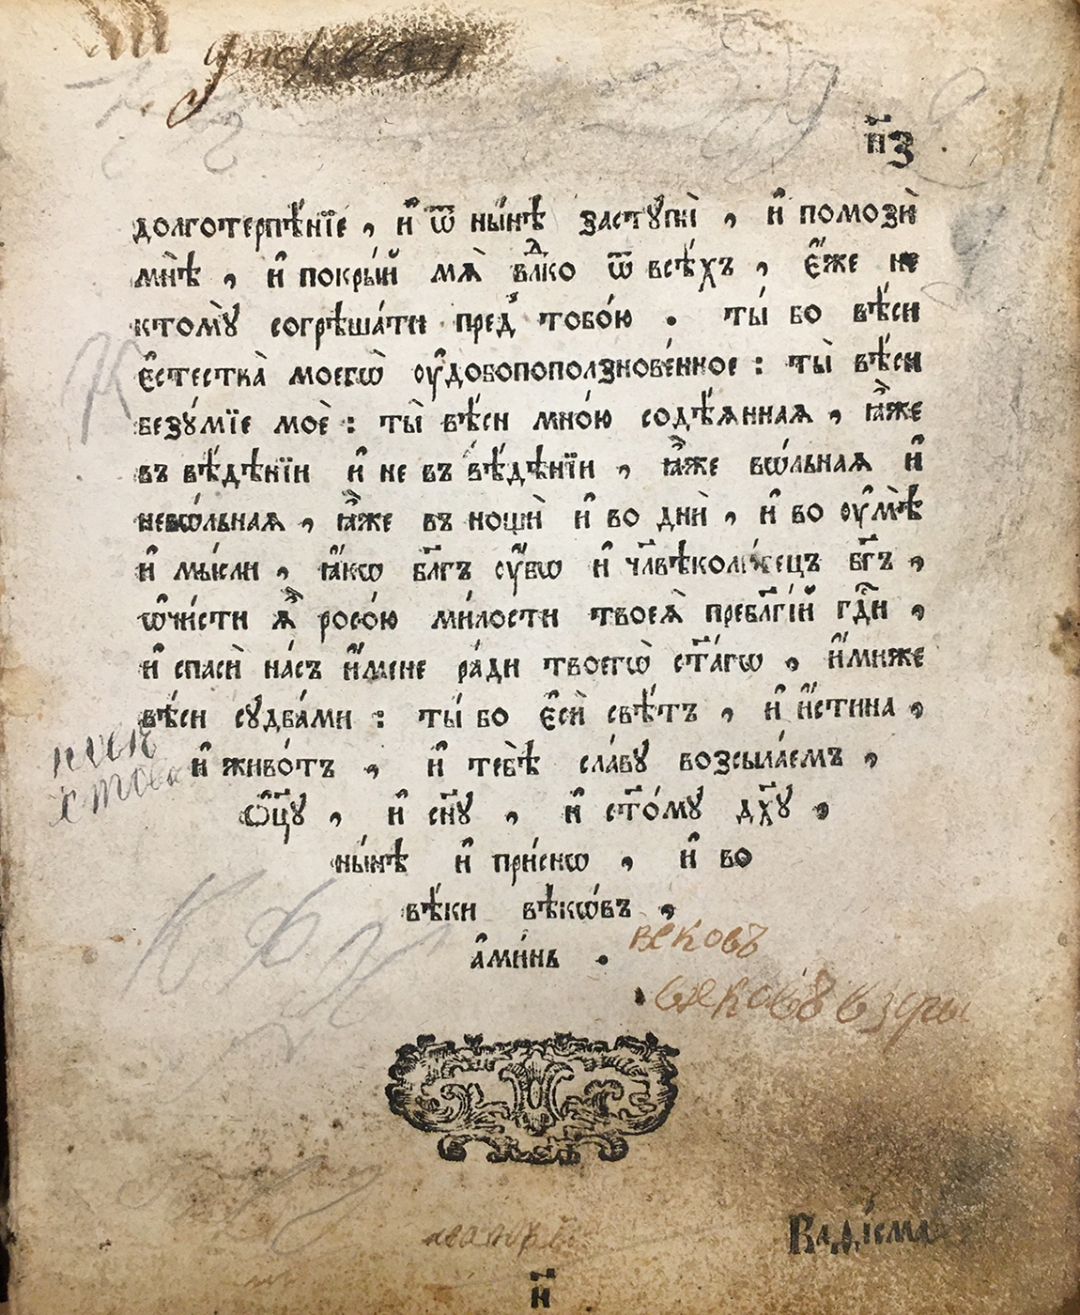 н҃з
долготерпѣ́нїе , и҆ ѿ ны́нѣ застꙋпѝ , и҆ помозѝ
мнѣ̀ , и҆ покры́й мѧ̀ влⷣко ѿ всѣ́хъ , є҆́же не
ктомꙋ̀ согрѣша́ти пред̾ тобо́ю . ты́ бо вѣ́си
є҆стества̀ моегѡ̀ ᲂу҆добопоползнове́нное : ты̀ вѣ́си
безꙋ́мїе моѐ : ты̀ вѣ́си мно́ю содѣ́ѧннаѧ , ꙗ҆̀же
въ вѣ́дѣнїи и҆ не въ вѣ́дѣнїи , ꙗ҆̀же вѡ́льнаѧ и҆
невѡ́льнаѧ , ꙗ҆̀же въ нощѝ и҆ во днѝ , и҆ во ᲂу҆мѣ̀
и҆ мы́сли , ꙗ҆́кѡ бл҃гъ ᲂу҆́бѡ и҆ чл҃вѣколю́бецъ бг҃ъ ,
ѡ҆чи́сти ѧ҆̀ росо́ю ми́лости твоеѧ̀ пребл҃гі́й гдⷭ҇и ,
и҆ спасѝ на́съ и҆́мене ра́ди твоегѡ̀ ст҃а́гѡ , и҆́миже
вѣ́си сꙋдба́ми : ты́ бо є҆сѝ свѣ́тъ , и҆ и҆́стина ,
и҆ живо́тъ , и҆ тебѣ̀ сла́вꙋ возсыла́емъ ,
ѻ҆ц҃ꙋ̀ , и҆ сн҃ꙋ , и҆ ст҃о́мꙋ дх҃ꙋ ,
ны́нѣ и҆ при́снѡ , и҆ во
вѣ́ки вѣкѡ́въ ,
а҆ми́нь .
вековъ
вековъ
Каѳі́сма
н҃